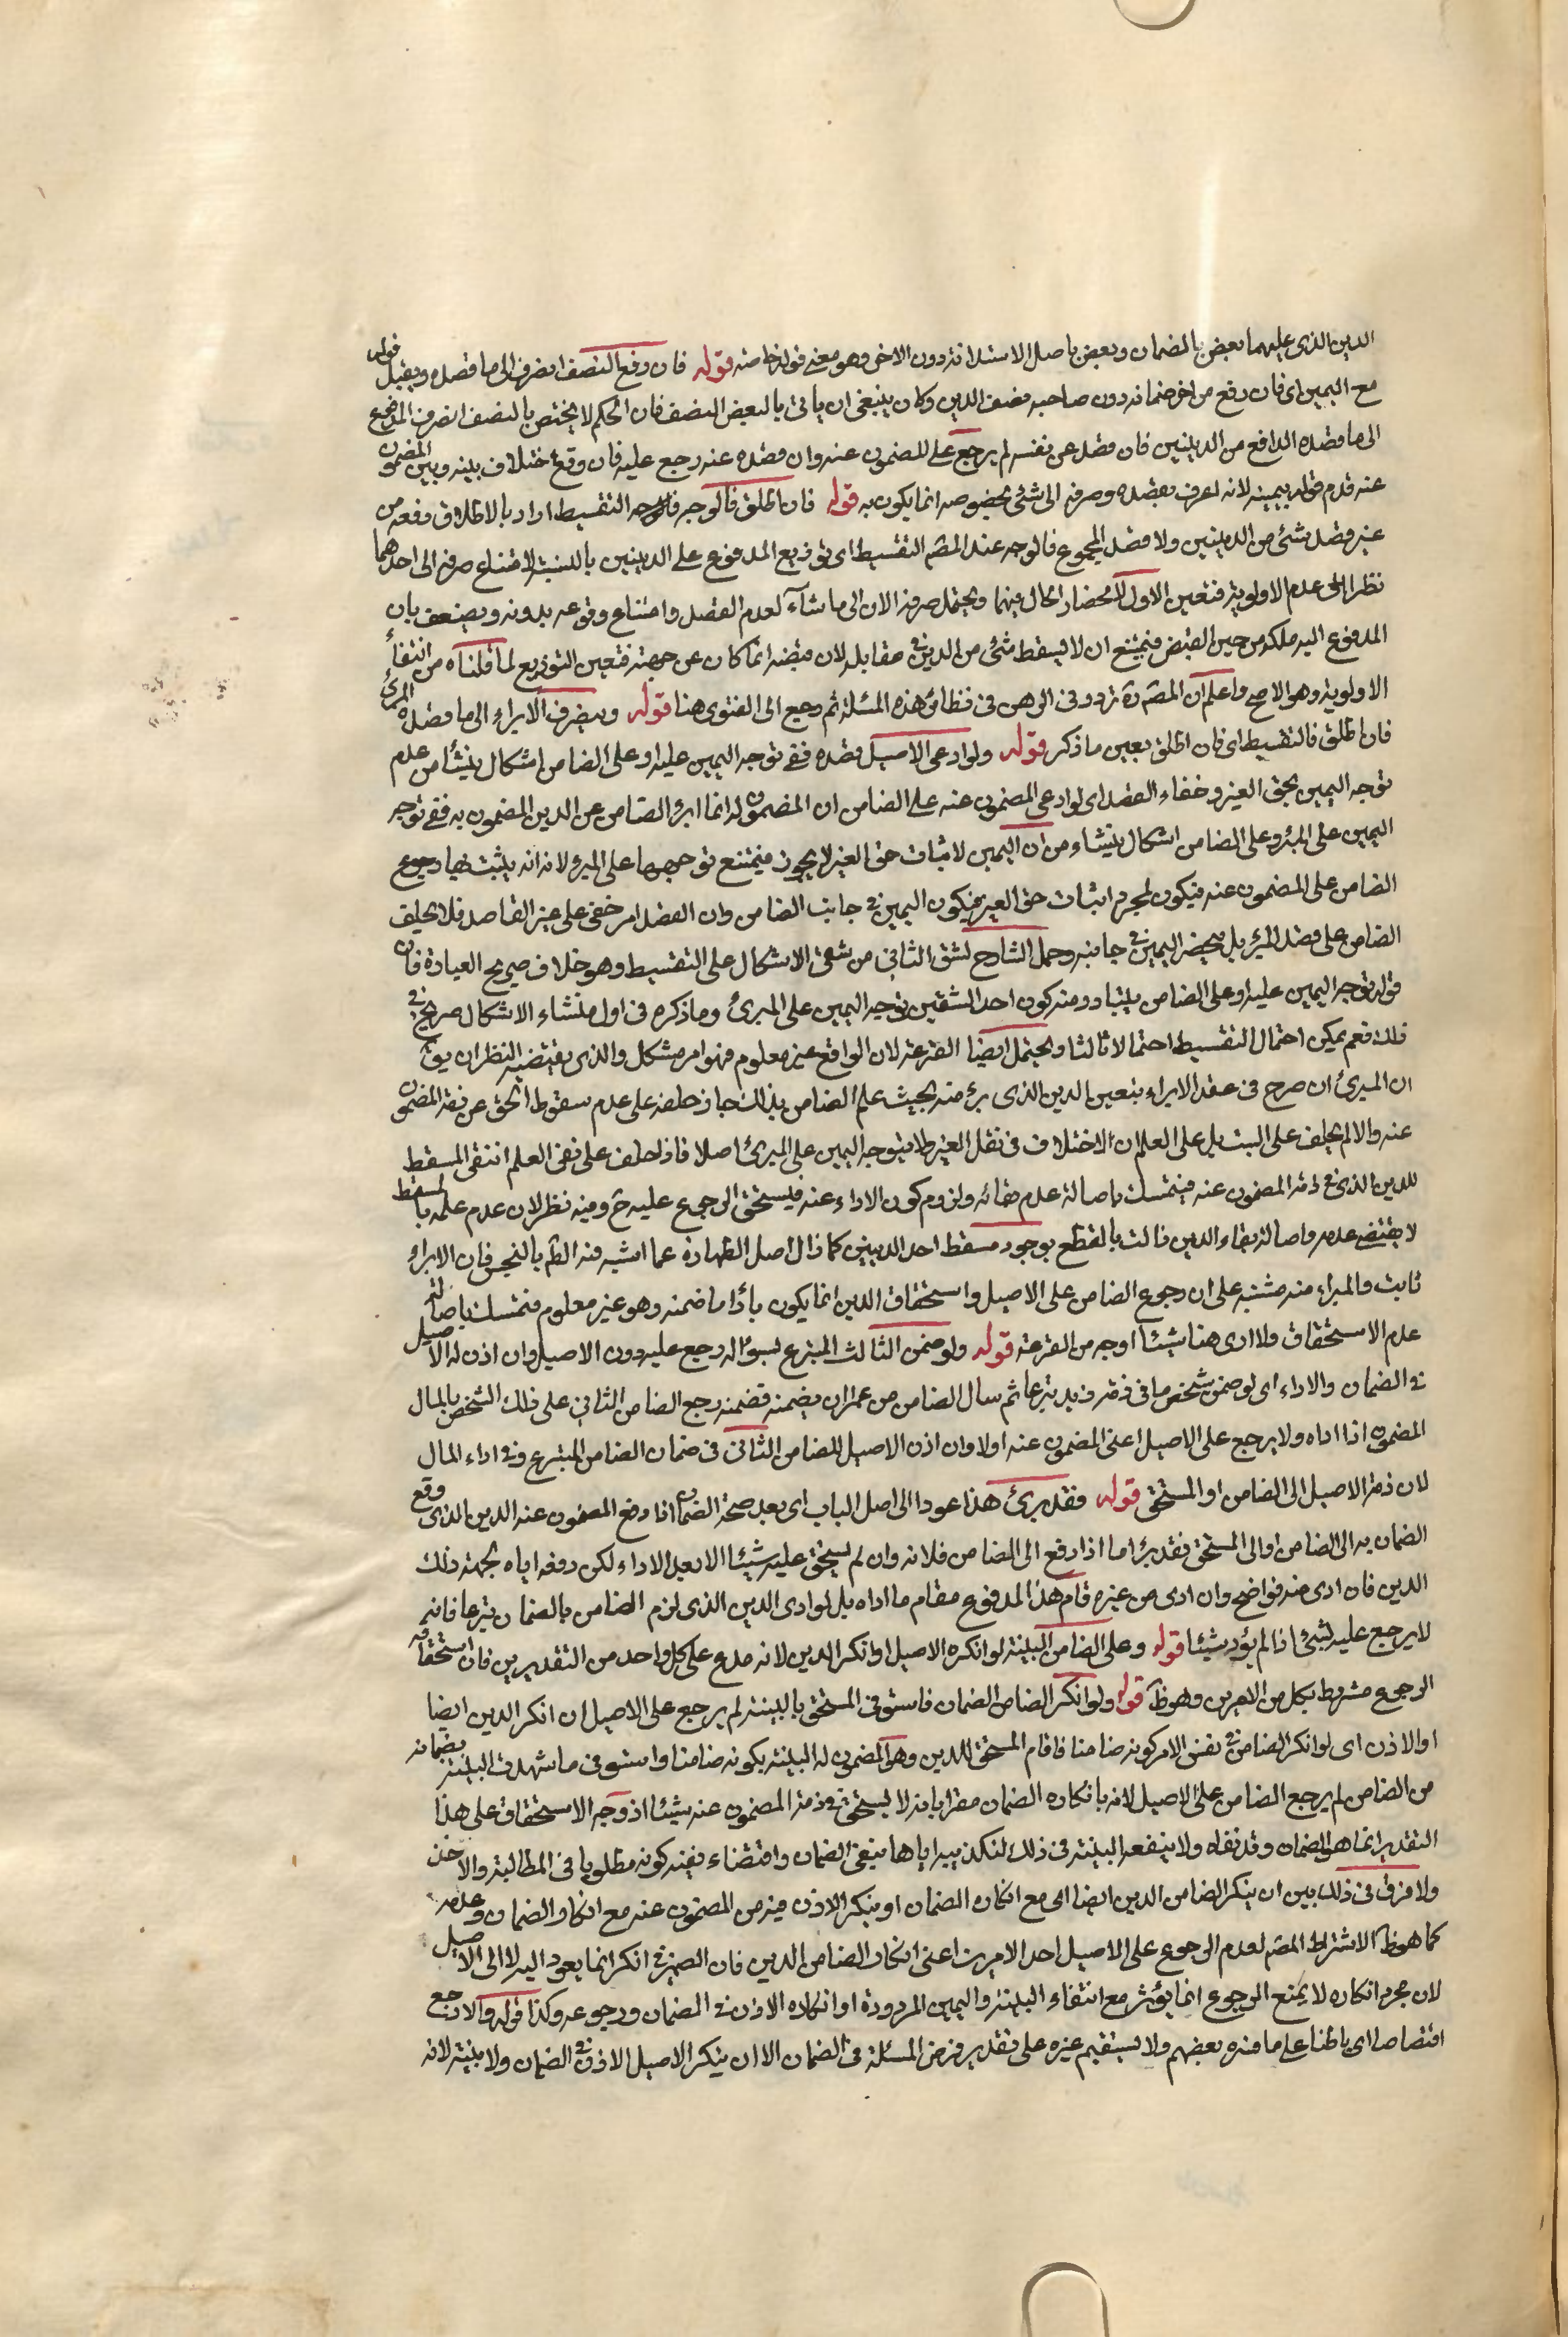 الدين الذى عليهما بعض بالضمان وبعض باصل الاستدانة دون الاخر وهو معنى قوله خاصة قوله فان دفع النصف انصرف الى ما قصده ويقبل قوله
مع اليمين اى فان دفع من اخر ضمانه دون صاحبه نصف الدين وكان ينبغى ان ياتى بالبعض النصف فان الحكم لا يختص بالنصف انصرف المدفوع
الى ما قصده الدافع من الدينين فان قصد عن نفسه لم يرجع على المضمون عنه وان قصده عنه رجع عليه فان وقع اختلاف بينه وبين المضمون
عنه قدم قوله بيمينه لانه اعرف بقصده وصرفه الى شئ بخصوصه انما يكون به قوله فان اطلق فالوجه التقسيط اراد بالاطلاق دفعه من
غير قصد شئ من الدينين ولا قصد المجموع فالوجه عند المصّ التقسيط اى توزيع المدفوع على الدينين بالنسبة لامتناع صرفه الى احدهما
نظرا الى عدم الاولوية فتعين الاول لانحصار الحال فيهما ويحتمل صرفه الان الى ما شآء لعدم القصد وامتناع وقوعه بدونه ويضعف بان
المدفوع اليه ملكه من حين القبض فيمتنع ان لا يسقط شئ من الدين فى مقابله لان قبضه انما كان عن جهته فتعين التوزيع لما قلناه من انتفاء
الاولوية وهو الاصح واعلم ان المصّ ره تردد فى الرهن فى نظائر هذه المسئلة ثم رجع الى الفتوى هنا قوله وينصرف الابراء الى ما قصده المبرئ
فان اطلق فالتقسيط اى فان اطلق بعين ما ذكر قوله ولو ادعى الاصيل قصده ففى توجه اليمين عليه او على الضامن اشكال ينشأ من عدم
توجه اليمين بحق الغير وخفاء القصد اى لو ادعى المضمون عنه على الضامن ان المضمون له انما ابرء الضامن عن الدين المضمون به ففى توجه
اليمين على المبرء او على الضامن اشكال ينشاء من ان اليمين لاثبات حق الغير لا يجوز فيمتنع توجهها على المبرء لانه انه يثبت بها رجوع
الضامن على المضمون عنه فيكون لمجرد اثبات حق الغير فيكون اليمين فى جانب الضامن وان القصد امر خفى على غير القاصد فلا يحلف
الضامن على قصد المبرئ بل ينحصر اليمين فى جانبه وحمل الشارح لشق الثانى من شقى الاشكال على التقسيط وهو خلاف صريح العبارة فان
قوله توجه اليمين عليه او على الضامن يتبادر منه كون احد الشقين توجه اليمين على المبرئ وما ذكره فى اول منشاء الاشكال صريح فى
ذلك نعم يمكن احتمال التقسيط احتمالا ثالثا ويحتمل ايضا القرعة لان الواقع غير معلوم فهو امر مشكل والذى يقتضيه النظر ان يقّ
ان المبرئ ان صرح فى عقد الابراء بتعين الدين الذى برء منه بحيث علم الضامن بذلك جاز حلفه على عدم سقوط الحق عن ذمة المضمون
عنه والا لم يحلف على البت بل على العلم ان الاختلاف فى نقل الغير ولا يتوجه اليمين على المبرئ اصلا فاذا حلف على نفى العلم انتفى المسقط
للدين الذى فى ذمة المضمون عنه فيتمسك باصالة عدم بقائه ولزوم كون الاداء عنه فيستحق الرجوع عليه حّ وفيه نظر لان عدم علمه بالمسقط
لا يقتضى عدمه واصالة بقاء الدين زالت بالقطع بوجود مسقط احد الدينين كما زال اصل الطهارة عما اشتبه فيه الطّم بالنجس فان الابراء
ثابت والمبراء منه مشتبه على ان رجوع الضامن على الاصيل واستحقاق الدين انما يكون بأدا ما ضمنه وهو غير معلوم فتمسك باصالة
عدم الاستحقاق ولا ارى هنا شيئا اوجه من القرعة قوله ولو ضمن الثالث المتبرع بسؤاله رجع عليه دون الاصيل وان اذن له الاصيل
فى الضمان والاداء اى لو ضمن شخص ما فى ذمة زيد تبرعا ثم سال الضامن من عمر ان يضمنه فضمنه رجع الضامن الثانى على ذلك الشخص بالمال
المضمون اذا اداه ولا يرجع على الاصيل اعنى المضمون عنه اولا وان اذن الاصيل للضامن الثانى فى ضمان الضامن المتبرع وفى اداء المال
لان ذمة الاصيل الى الضامن او المستحق قوله فقد برئ هذا عود الى اصل الباب اى بعد صحة الضمان اذا دفع المضمون عنه الدين الذى وقع
الضمان به الى الضامن او الى المستحق فقد برئ اما اذا دفع الى الضامن فلانه وان لم يستحق عليه شيئا الا بعد الاداء لكن دفعه اياه لجهة ذلك
الدين فان ادى منه فواضح وان ادى من غيره قام هذا المدفوع مقام ما اداه بل لو ادى الدين الذى لزم الضامن بالضمان تبرعا فانه
لا يرجع عليه بشئ اذا لم يؤد شيئا قوله وعلى الضامن البينة لو انكره الاصيل او انكر الدين لانه مدع على كل واحد من التقديرين فان استحقاقه
الرجوع مشروط بكل من الامرين وهو ظّ قوله ولو انكر الضامن الضمان فاستوفى المستحق بالبينة لم يرجع على الاصيل ان انكر الدين ايضا
او الاذن اى لو انكر الضامن فى نفس الامر كونه ضامنا فاقام المستحق للدين وهو المضمون له البينة بكونه ضامنا واستوفى ما شهدت البينة بضمانه
من الضامن لم يرجع الضامن على الاصيل لانه بانكاره الضمان مقر بانه لا يستحق فى ذمة المضمون عنه شيئا اذ وجه الاستحقاق على هذا
التقدير انما هو الضمان وقد نفاه ولا ينفعه البينة فى ذلك لتكذيبه اياها بنفى الضمان واقتضاء نفيه كونه مظلوما فى المطالبة والاخذ
ولا فرق فى ذلك بين ان ينكر الضامن الدين ايضا اى مع انكاره الضمان او ينكر الاذن فيه من المضمون عنه مع انكار الضمان وعدمه
كما هو ظّ لاشتراط المصّ لعدم الرجوع على الاصيل احد الامرين اعنى انكار الضامن الدين فان الضمير فى انكر انما يعود اليه لا الى الاصيل
لان مجرد انكاره لا يمنع الرجوع انما يؤثر مع انتفاء البينة واليمين المردودة او انكاره الاذن فى الضمان ورجوعه وكذا قوله والا رجع
اقتصاصا اى باطنا على ما فسره بعضهم ولا يستقيم غيره على تقدير فرض المسئلة فى الضمان الا ان ينكر الاصيل الاذن فى الضمان ولا بينة لانه